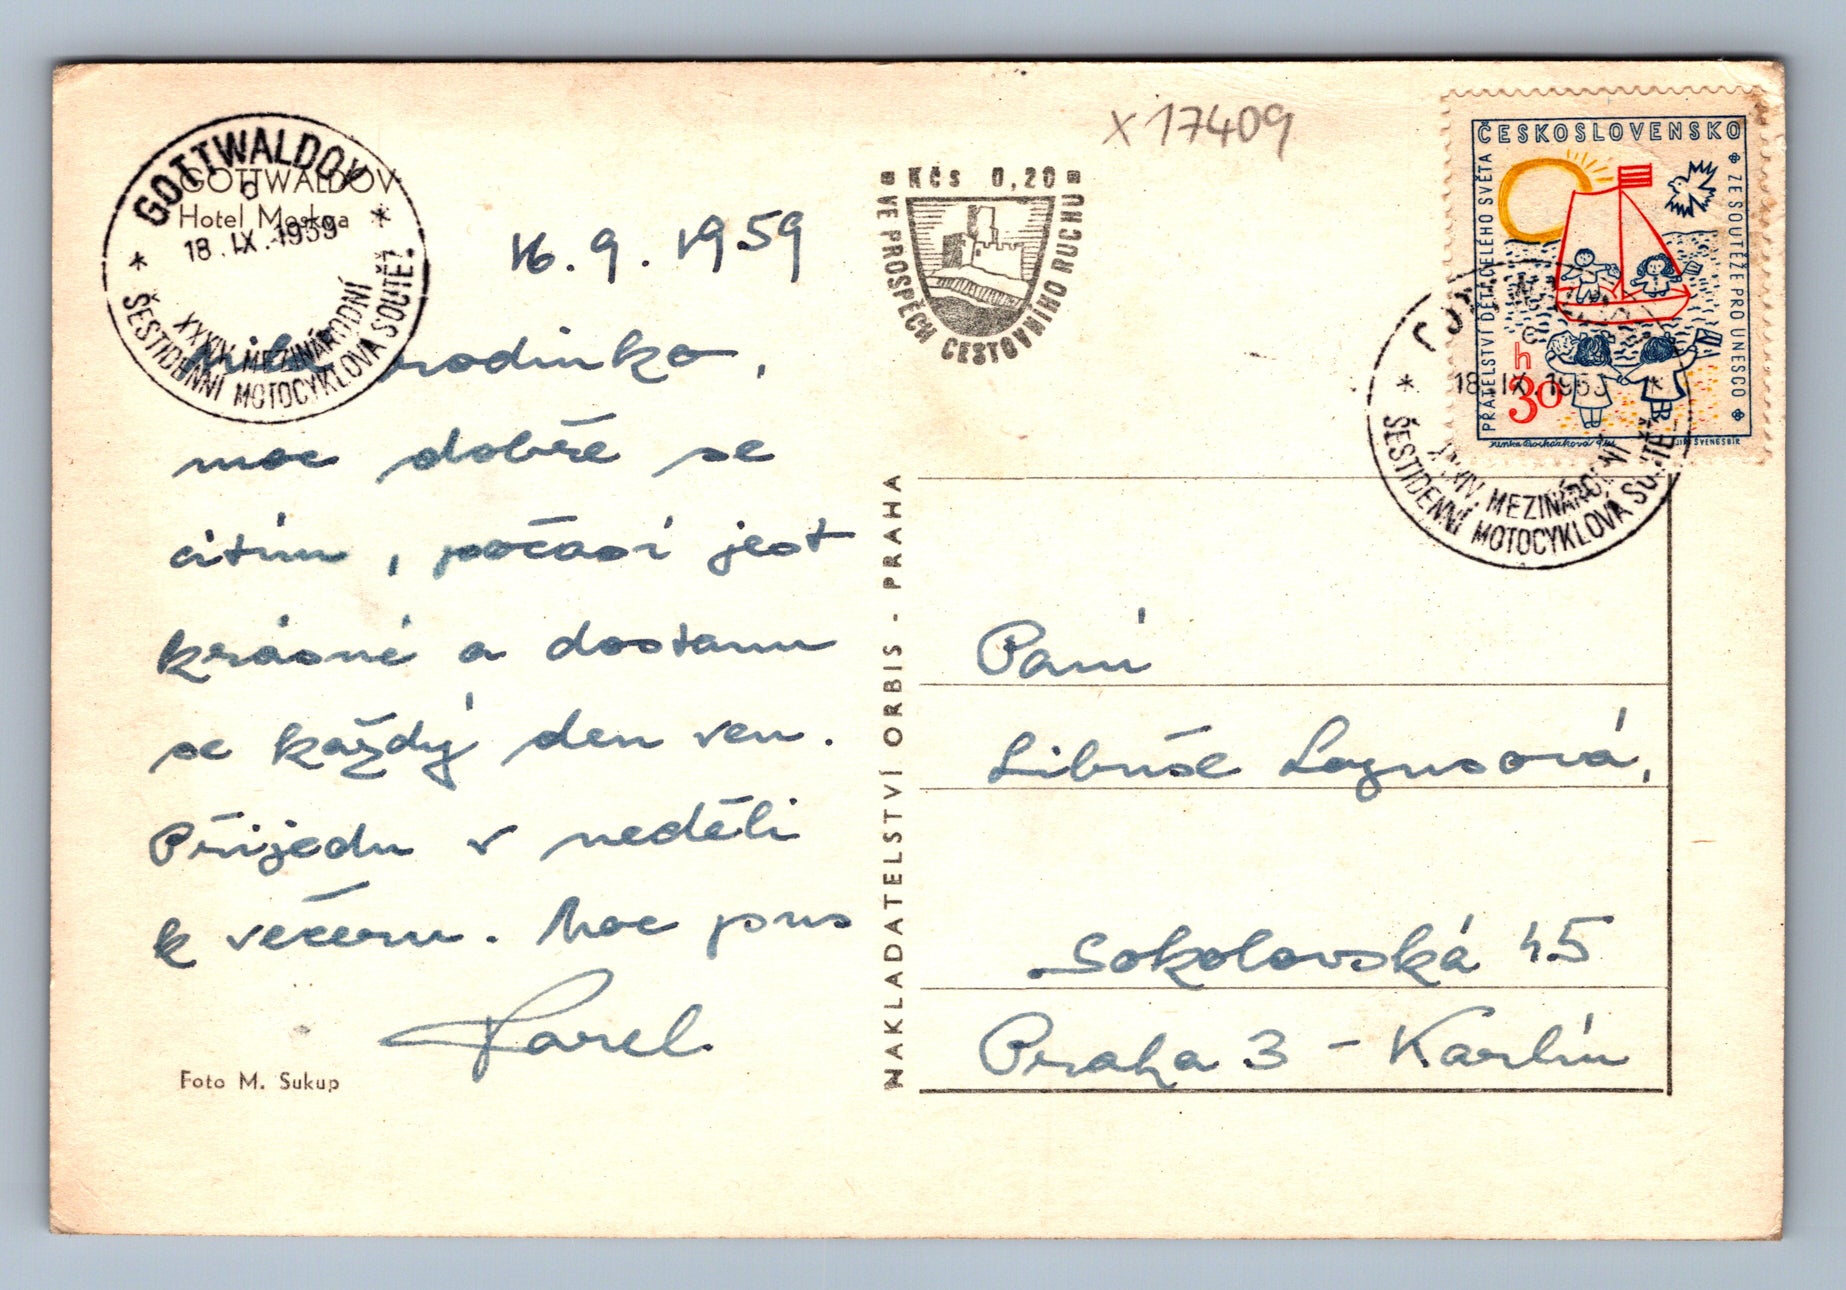 GOTTWALDOV
Hotel Moskva
GOTTWALDOV
18.IX.1959
XXXIV. MEZINÁRODNÍ
ŠESTIDENNÍ MOTOCYKLOVÁ SOUTĚŽ
16.9.1959
Milá rodinko,
moc dobře se
cítím, počasí jest
krásné a dostanu
se každý den ven.
Přijedu v neděli
k večeru. Moc pus
Karel
Foto M. Sukup
NAKLADATELSTVÍ ORBIS - PRAHA
Kčs 0,20
VE PROSPĚCH CESTOVNÍHO RUCHU
X 17409
ČESKOSLOVENSKO
PŘÁTELSTVÍ DĚTÍ CELÉHO SVĚTA
ZE SOUTĚŽE PRO UNESCO
h
30
JIŘÍ ŠVENGSBÍR
18.IX.1959
XXXIV. MEZINÁRODNÍ
ŠESTIDENNÍ MOTOCYKLOVÁ SOUTĚŽ
Paní
Libuše
Sokolovská 45
Praha 3 - Karlín